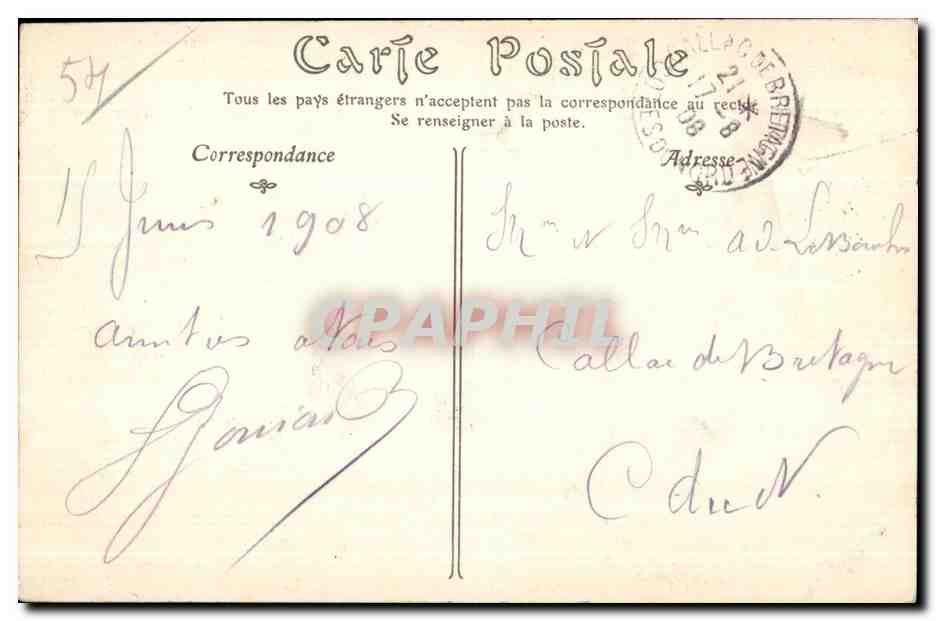 Carte Postale
Tous les pays étrangers n'acceptent pas la correspondance au recto
Se renseigner à la poste.
Correspondance
Adresse
CALLAC DE BRETAGNE
21 *
17-8
08
COTES DU NORD
54
15 Juin 1908
amitiés a tous
Mr et Mme
Callac de Bretagne
C du N.
CPAPHIL